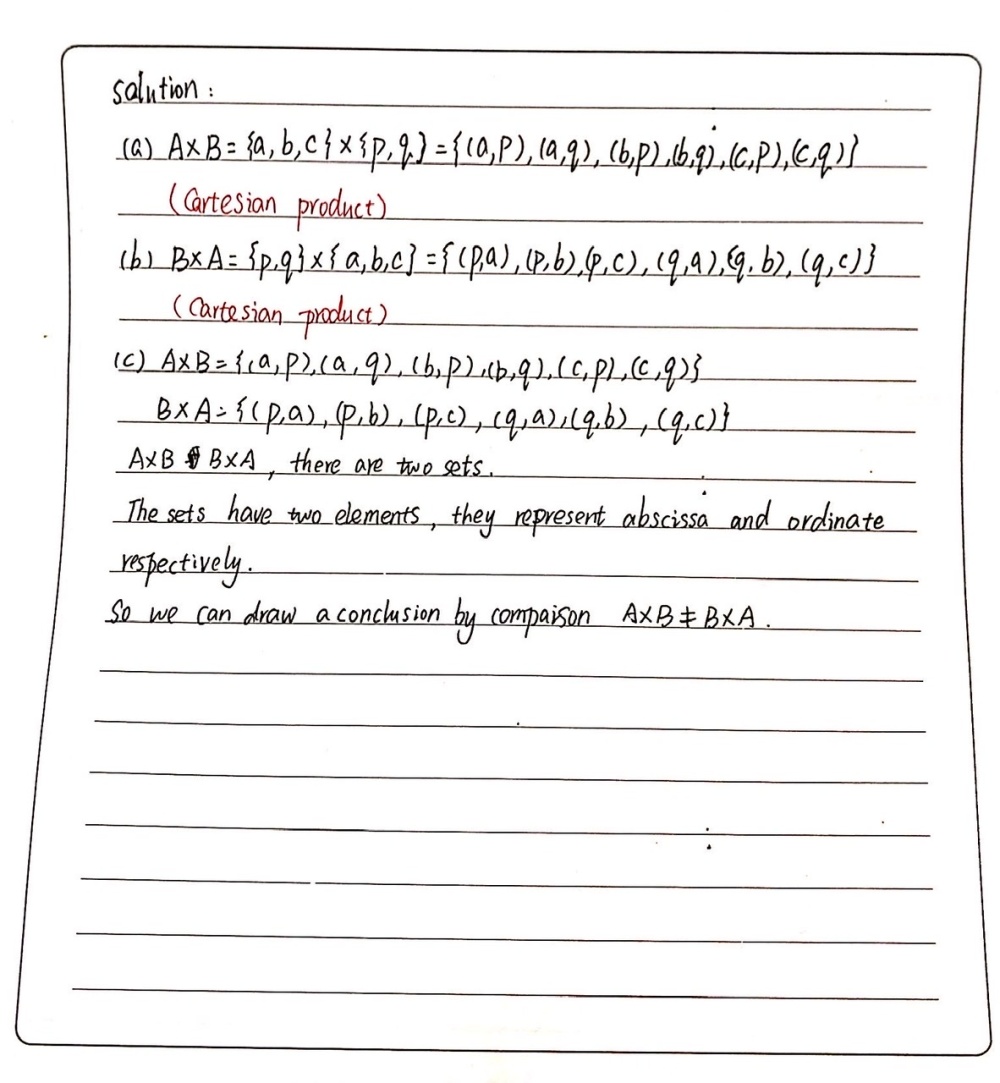 Solution :
(a) A×B = {a, b, c} × {p, q} = {(a,p), (a,q), (b,p), (b,q), (c,p), (c,q)}
(Cartesian product)
(b) B×A = {p,q} × {a,b,c} = {(p,a), (p,b), (p,c), (q,a), (q,b), (q,c)}
(Cartesian product)
(c) A×B = {(a,p), (a,q), (b,p), (b,q), (c,p), (c,q)}
B×A = {(p,a), (p,b), (p,c), (q,a), (q,b), (q,c)}
A×B B×A, there are two sets.
The sets have two elements, they represent abscissa and ordinate
respectively.
So we can draw a conclusion by compaison A×B ≠ B×A.